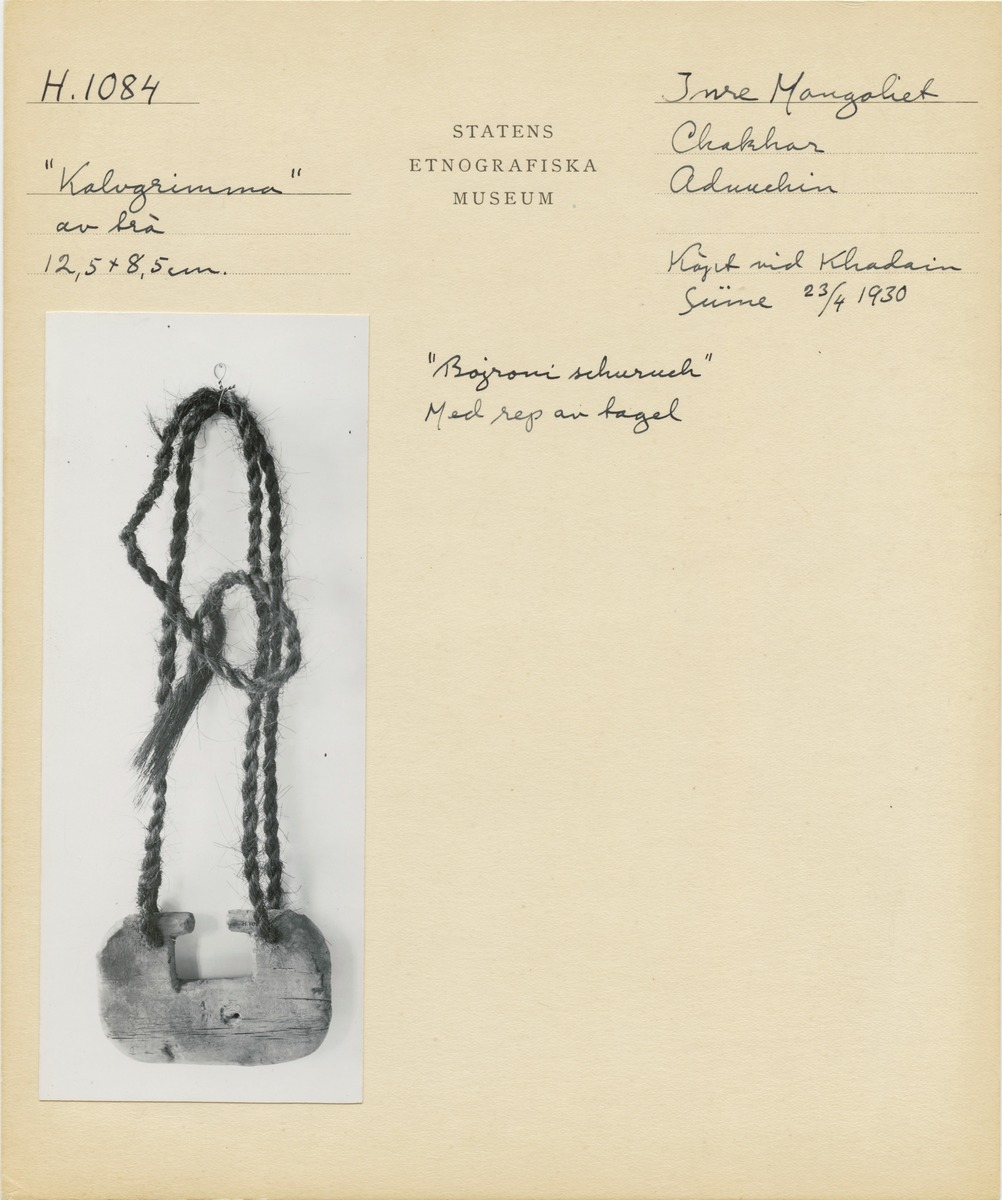 H.1084
"Kalvgrimma"
av trä
12,5 + 8,5 cm.
STATENS
ETNOGRAFISKA
MUSEUM
Inre Mongoliet
Chakhar
Aduuchin
Köpt vid Khadain
Süme 23/4 1930
"Bojroni schuruch"
Med rep av tagel